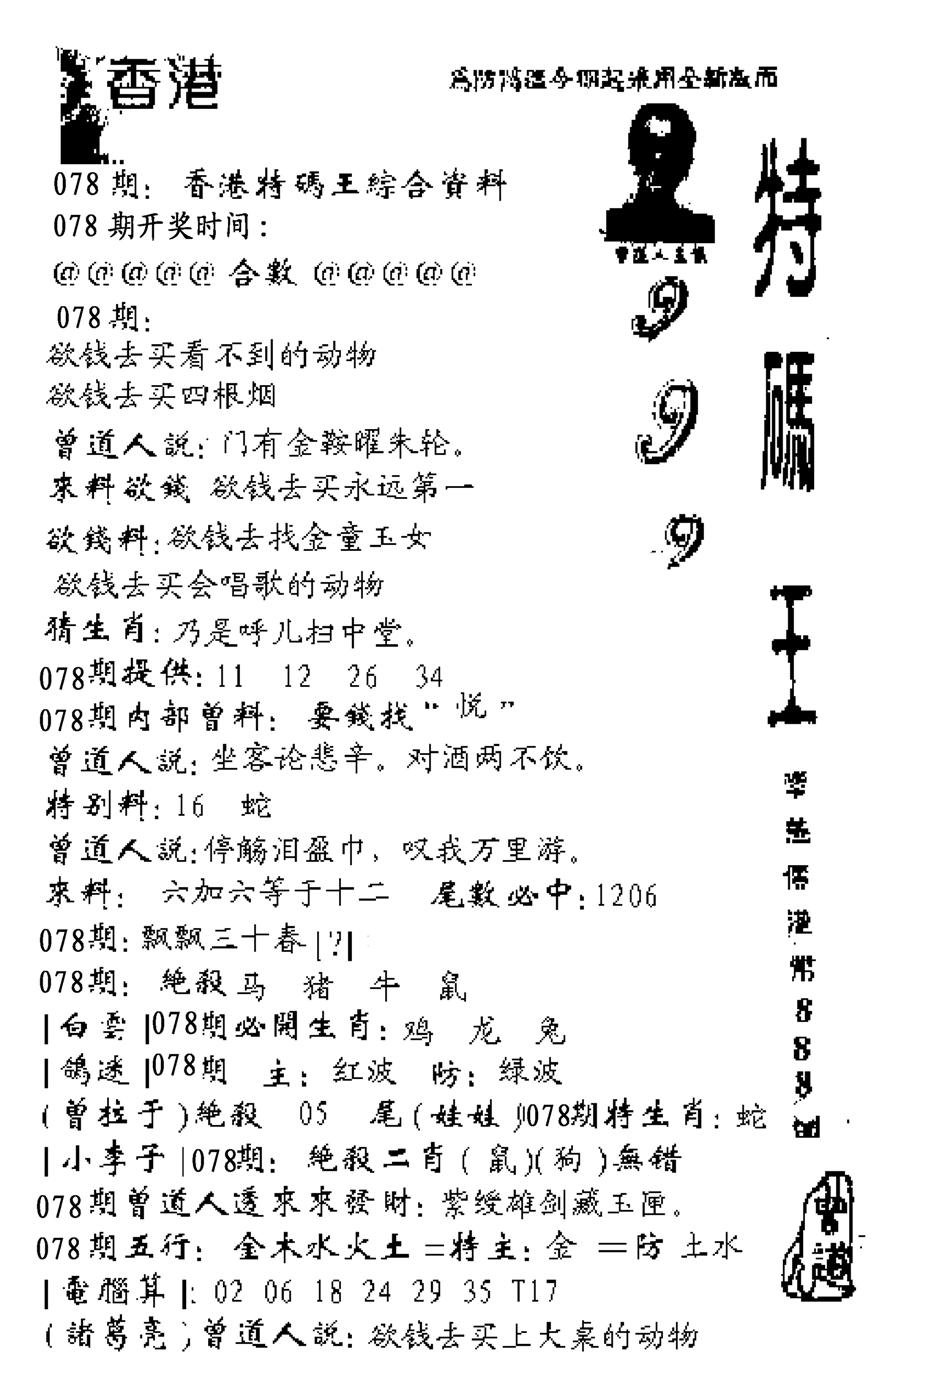 香港
為防
078期：香港特碼王綜合資料
078期开奖时间：
@@@@@合數@@@@@
078期：
欲钱去买看不到的动物
欲钱去买四根烟
曾道人説：门有金鞍曜朱轮。
來料欲錢 欲钱去买永远第一
欲錢料：欲钱去找金童玉女
欲钱去买会唱歌的动物
猜生肖：乃是呼儿扫中堂。
078期提供：11 12 26 34
078期内部曾料：要錢找“悦”
曾道人説：坐客论悲辛。对酒两不饮。
特别料：16 蛇
曾道人説：停觞泪盈巾，叹我万里游。
來料：六加六等于十二 尾數必中：1206
078期：飘飘三十春|?|
078期：絶殺马 猪 牛 鼠
|白雲|078期必開生肖：鸡 龙 兔
|鴿迷|078期 主：红波 防：绿波
(曾拉于)絶殺 05 尾(娃娃)078期特生肖：蛇
|小李子|078期：絶殺二肖(鼠)(狗)無错
078期曾道人透來來發財：紫绶雄剑藏玉匣。
078期五行：金木水火土=特主：金 =防 土水
|電腦算|：02 06 18 24 29 35 T17
(諸葛亮)曾道人説：欲钱去买上大桌的动物
曾道人
9
9
9
特碼王
港幣888
曾道